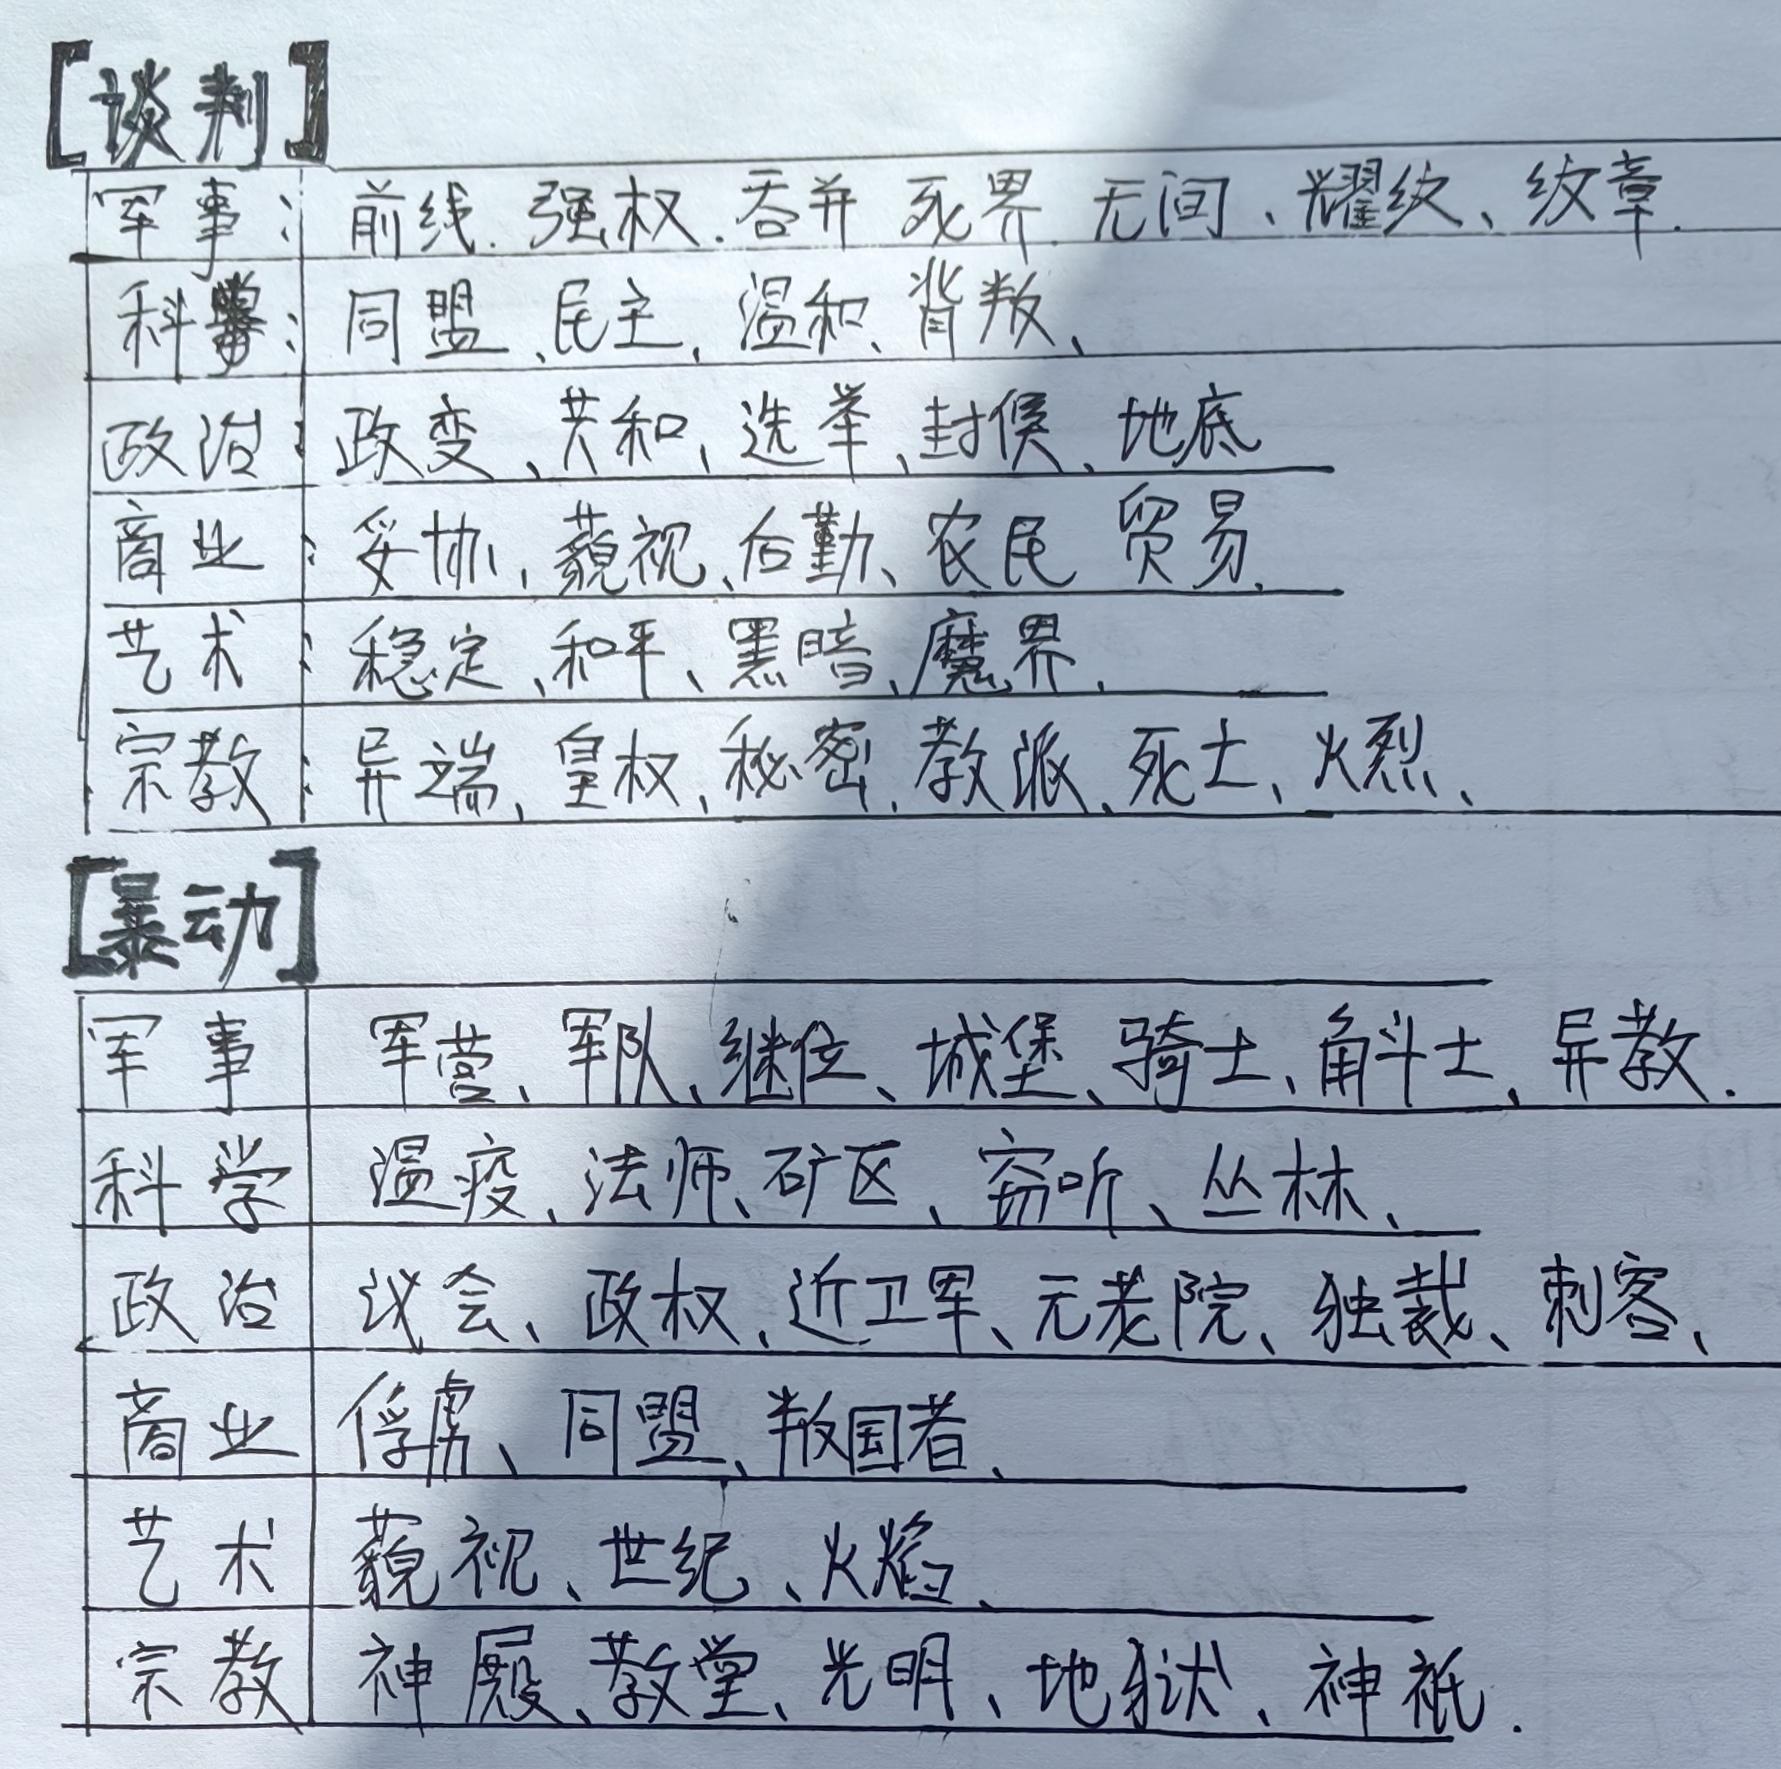 [谈判]
军事: 前线、强权、吞并 死界、无间、耀纹、纹章.
科学: 同盟、民主、温和、背叛、
政治: 政变、共和、选举、封侯、地底
商业: 妥协、藐视、后勤、农民 贸易、
艺术: 稳定、和平、黑暗、魔界、
宗教: 异端、皇权、秘密、教派、死士、火烈、
[暴动]
军事 军营、军队、继位、城堡、骑士、角斗士、异教.
科学 温疫、法师、矿区、窃听、丛林、
政治 议会、政权、近卫军、元老院、独裁、刺客、
商业 俘虏、同盟、叛国者、
艺术 藐视、世纪、火焰、
宗教 神殿、教堂、光明、地狱、神祇.